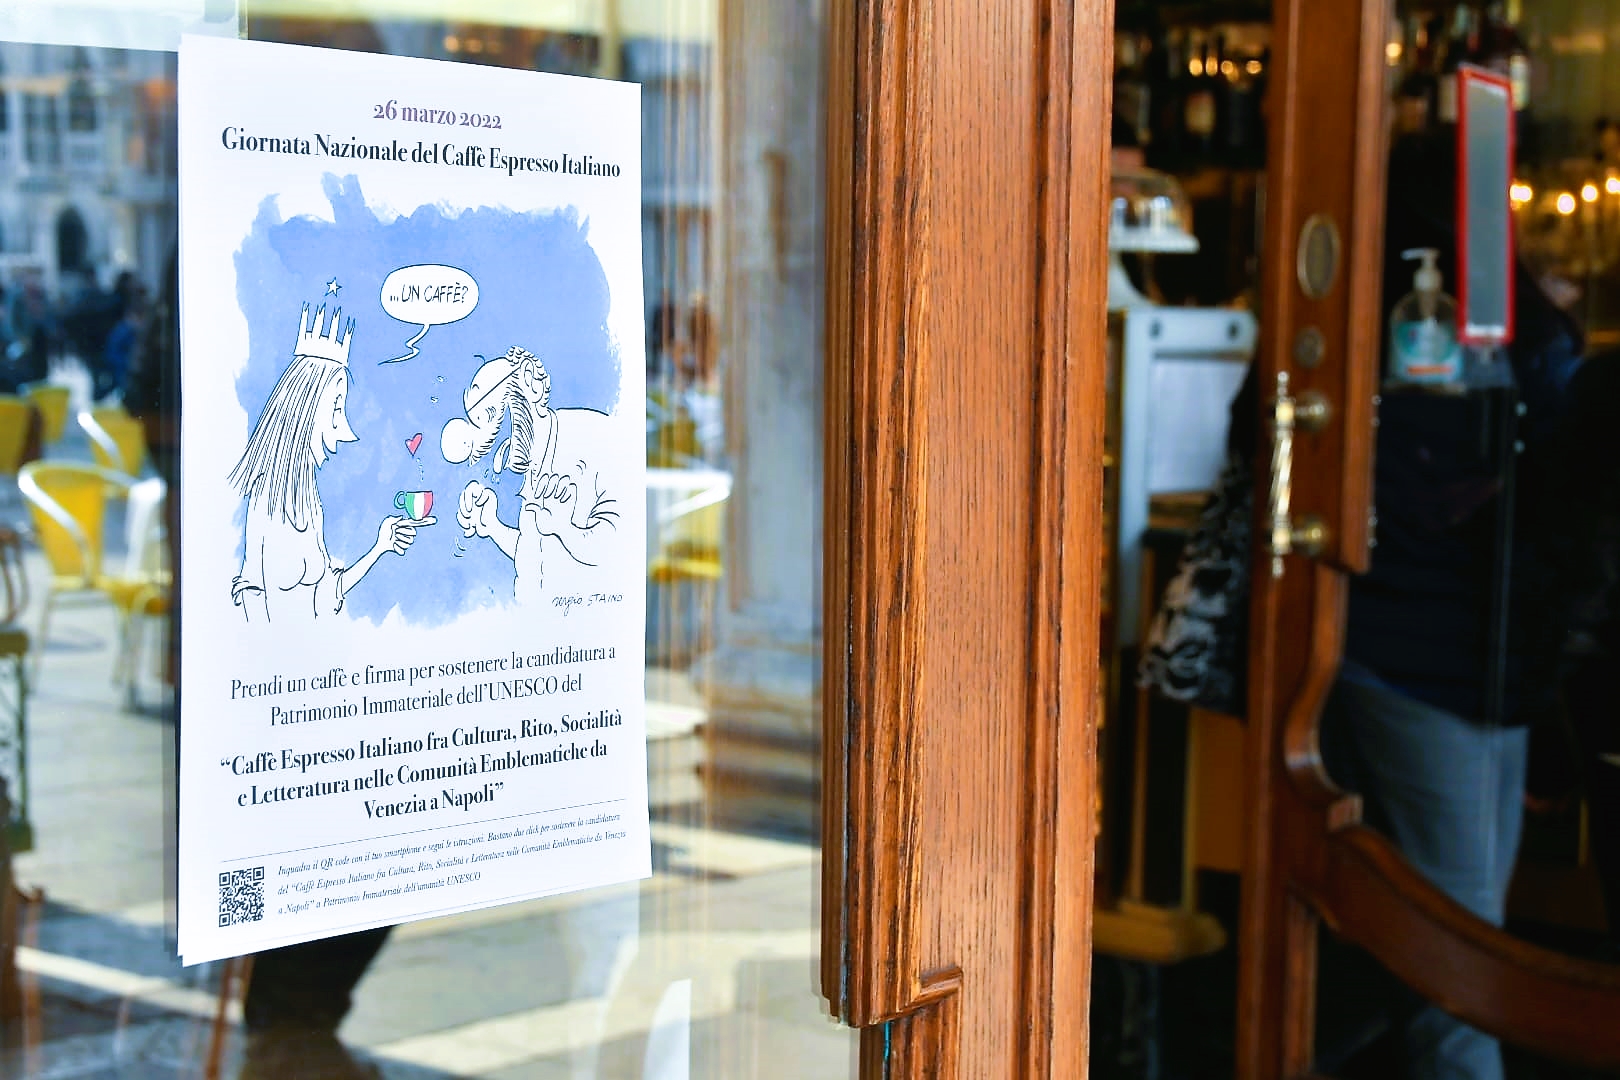 26 marzo 2022
Giornata Nazionale del Caffè Espresso Italiano
...UN CAFFÈ?
sergio STAINO
Prendi un caffè e firma per sostenere la candidatura a
Patrimonio Immateriale dell'UNESCO del
“Caffè Espresso Italiano fra Cultura, Rito, Socialità
e Letteratura nelle Comunità Emblematiche da
Venezia a Napoli”
Inquadra il QR code con il tuo smartphone e segui le istruzioni. Bastano due click per sostenere la candidatura
del “Caffè Espresso Italiano fra Cultura, Rito, Socialità e Letteratura nelle Comunità Emblematiche da Venezia
a Napoli” a Patrimonio Immateriale dell'umanità UNESCO